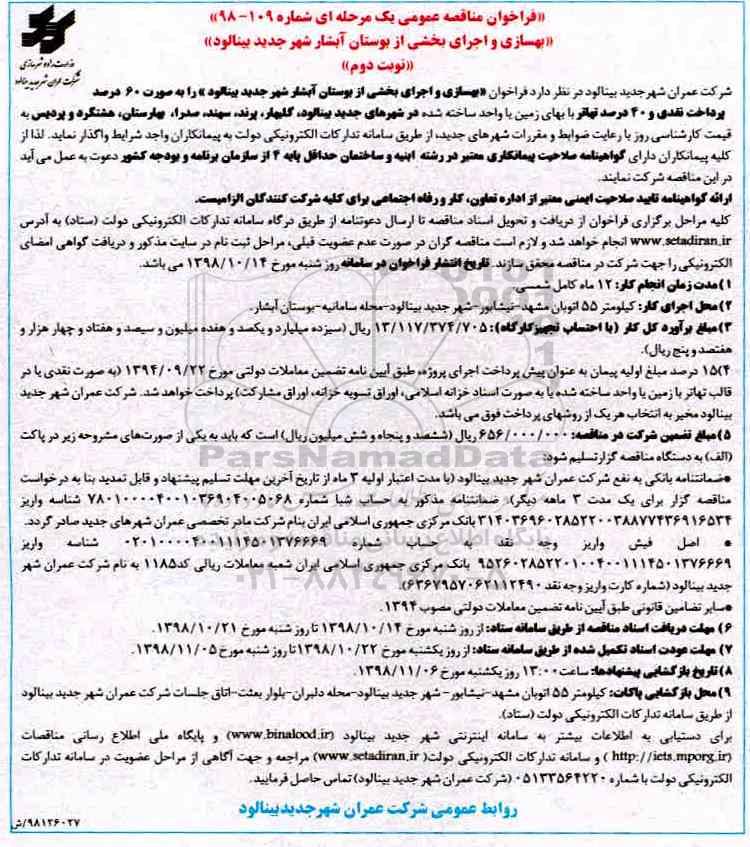 «فراخوان مناقصه عمومی یک مرحله ای شماره ۱۰۹-۹۸»
«بهسازی و اجرای بخشی از بوستان آبشار شهر جدید بینالود»
«نوبت دوم»
وزارت راه و شهرسازی
شرکت عمران شهر جدید بینالود
شرکت عمران شهر جدید بینالود در نظر دارد فراخوان «بهسازی و اجرای بخشی از بوستان آبشار شهر جدید بینالود» را به صورت ۶۰ درصد
پرداخت نقدی و ۴۰ درصد تهاتر با بهای زمین یا واحد ساخته شده در شهرهای جدید بینالود، گلبهار، پرند، سهند، صدرا، بهارستان، هشتگرد و پردیس به
قیمت کارشناسی روز با رعایت ضوابط و مقررات شهرهای جدید، از طریق سامانه تدارکات الکترونیکی دولت به پیمانکاران واجد شرایط واگذار نماید. لذا از
کلیه پیمانکاران دارای گواهینامه صلاحیت پیمانکاری معتبر در رشته ابنیه و ساختمان حداقل پایه ۴ از سازمان برنامه و بودجه کشور دعوت به عمل می آید
در این مناقصه شرکت نمایند.
ارائه گواهینامه تایید صلاحیت ایمنی معتبر از اداره تعاون، کار و رفاه اجتماعی برای کلیه شرکت کنندگان الزامیست.
کلیه مراحل برگزاری فراخوان از دریافت و تحویل اسناد مناقصه تا ارسال دعوتنامه از طریق درگاه سامانه تدارکات الکترونیکی دولت (ستاد) به آدرس
www.setadiran.ir انجام خواهد شد و لازم است مناقصه گران در صورت عدم عضویت قبلی، مراحل ثبت نام در سایت مذکور و دریافت گواهی امضای
الکترونیکی را جهت شرکت در مناقصه محقق سازند. تاریخ انتشار فراخوان در سامانه روز شنبه مورخ ۱۳۹۸/۱۰/۱۴ می باشد.
۱) مدت زمان انجام کار: ۱۲ ماه کامل شمسی
۲) محل اجرای کار: کیلومتر ۵۵ اتوبان مشهد-نیشابور-شهر جدید بینالود-محله سامانیه-بوستان آبشار.
۳) مبلغ برآورد کل کار (با احتساب تجهیزکارگاه): ۱۳/۱۱۷/۳۷۴/۷۰۵ ریال (سیزده میلیارد و یکصد و هفده میلیون و سیصد و هفتاد و چهار هزار و
هفتصد و پنج ریال).
۴) ۱۵ درصد مبلغ اولیه پیمان به عنوان پیش پرداخت اجرای پروژه، طبق آیین نامه تضمین معاملات دولتی مورخ ۱۳۹۴/۰۹/۲۲ (به صورت نقدی یا در
قالب تهاتر با زمین یا واحد ساخته شده یا به صورت اسناد خزانه اسلامی، اوراق تسویه خزانه، اوراق مشارکت) پرداخت خواهد شد. شرکت عمران شهر جدید
بینالود مخیر به انتخاب هر یک از روشهای پرداخت فوق می باشد.
۵) مبلغ تضمین شرکت در مناقصه: ۶۵۶/۰۰۰/۰۰۰ ریال (ششصد و پنجاه و شش میلیون ریال) است که باید به یکی از صورت‌های مشروحه زیر در پاکت
(الف) به دستگاه مناقصه گزار تسلیم شود:
•ضمانتنامه بانکی به نفع شرکت عمران شهر جدید بینالود (با مدت اعتبار اولیه ۳ ماه از تاریخ آخرین مهلت تسلیم پیشنهاد و قابل تمدید بنا به درخواست
مناقصه گزار برای یک مدت ۳ ماهه دیگر). ضمانتنامه مذکور به حساب شبا شماره ۷۸۰۱۰۰۰۰۴۰۰۱۰۳۶۹۰۴۰۰۵۰۶۸ شناسه واریز
۳۱۴۰۳۶۹۶۰۲۸۵۲۲۰۰۳۸۸۷۷۴۳۶۹۱۶۵۳۴ بانک مرکزی جمهوری اسلامی ایران بنام شرکت مادر تخصصی عمران شهرهای جدید صادر گردد.
• اصل فیش واریز وجه نقد به حساب شماره ۰۲۰۱۰۰۰۰۴۰۰۱۱۱۴۵۰۱۳۷۶۶۶۹ شناسه واریز
۹۵۲۶۰۲۸۵۲۲۰۱۰۰۴۰۰۱۱۱۴۵۰۱۳۷۶۶۶۹ بانک مرکزی جمهوری اسلامی ایران شعبه معاملات ریالی کد۱۱۸۵ به نام شرکت عمران شهر
جدید بینالود (شماره کارت واریز وجه نقد ۶۳۶۷۹۵۷۰۶۲۱۱۲۴۹۰).
•سایر تضامین قانونی طبق آیین نامه تضمین معاملات دولتی مصوب ۱۳۹۴.
۶) مهلت دریافت اسناد مناقصه از طریق سامانه ستاد: از روز شنبه مورخ ۱۳۹۸/۱۰/۱۴ تا روز شنبه مورخ ۱۳۹۸/۱۰/۲۱.
۷) مهلت عودت اسناد تکمیل شده از طریق سامانه ستاد: از روز یکشنبه مورخ ۱۳۹۸/۱۰/۲۲ تا روز شنبه مورخ ۱۳۹۸/۱۱/۰۵.
۸) تاریخ بازگشایی پیشنهادها: ساعت ۱۳:۰۰ روز یکشنبه مورخ ۱۳۹۸/۱۱/۰۶.
۹) محل بازگشایی پاکات: کیلومتر ۵۵ اتوبان مشهد-نیشابور- شهر جدید بینالود-محله دلبران-بلوار بعثت-اتاق جلسات شرکت عمران شهر جدید بینالود
از طریق سامانه تدارکات الکترونیکی دولت (ستاد).
برای دستیابی به اطلاعات بیشتر به سامانه اینترنتی شهر جدید بینالود (www.binalood.ir) و پایگاه ملی اطلاع رسانی مناقصات
(http://iets.mporg.ir) و سامانه تدارکات الکترونیکی دولت (www.setadiran.ir) مراجعه و جهت آگاهی از مراحل عضویت در سامانه تدارکات
الکترونیکی دولت با شماره ۰۵۱۳۳۵۶۴۲۲۰ (شرکت عمران شهر جدید بینالود) تماس حاصل فرمایید.
روابط عمومی شرکت عمران شهرجدیدبینالود
۹۸۱۲۶۰۲۷/ش
ParsNamadData
پایگاه اطلاع رسانی مناقصات
۰۲۱-۸۸۳۴۹۶۷۰